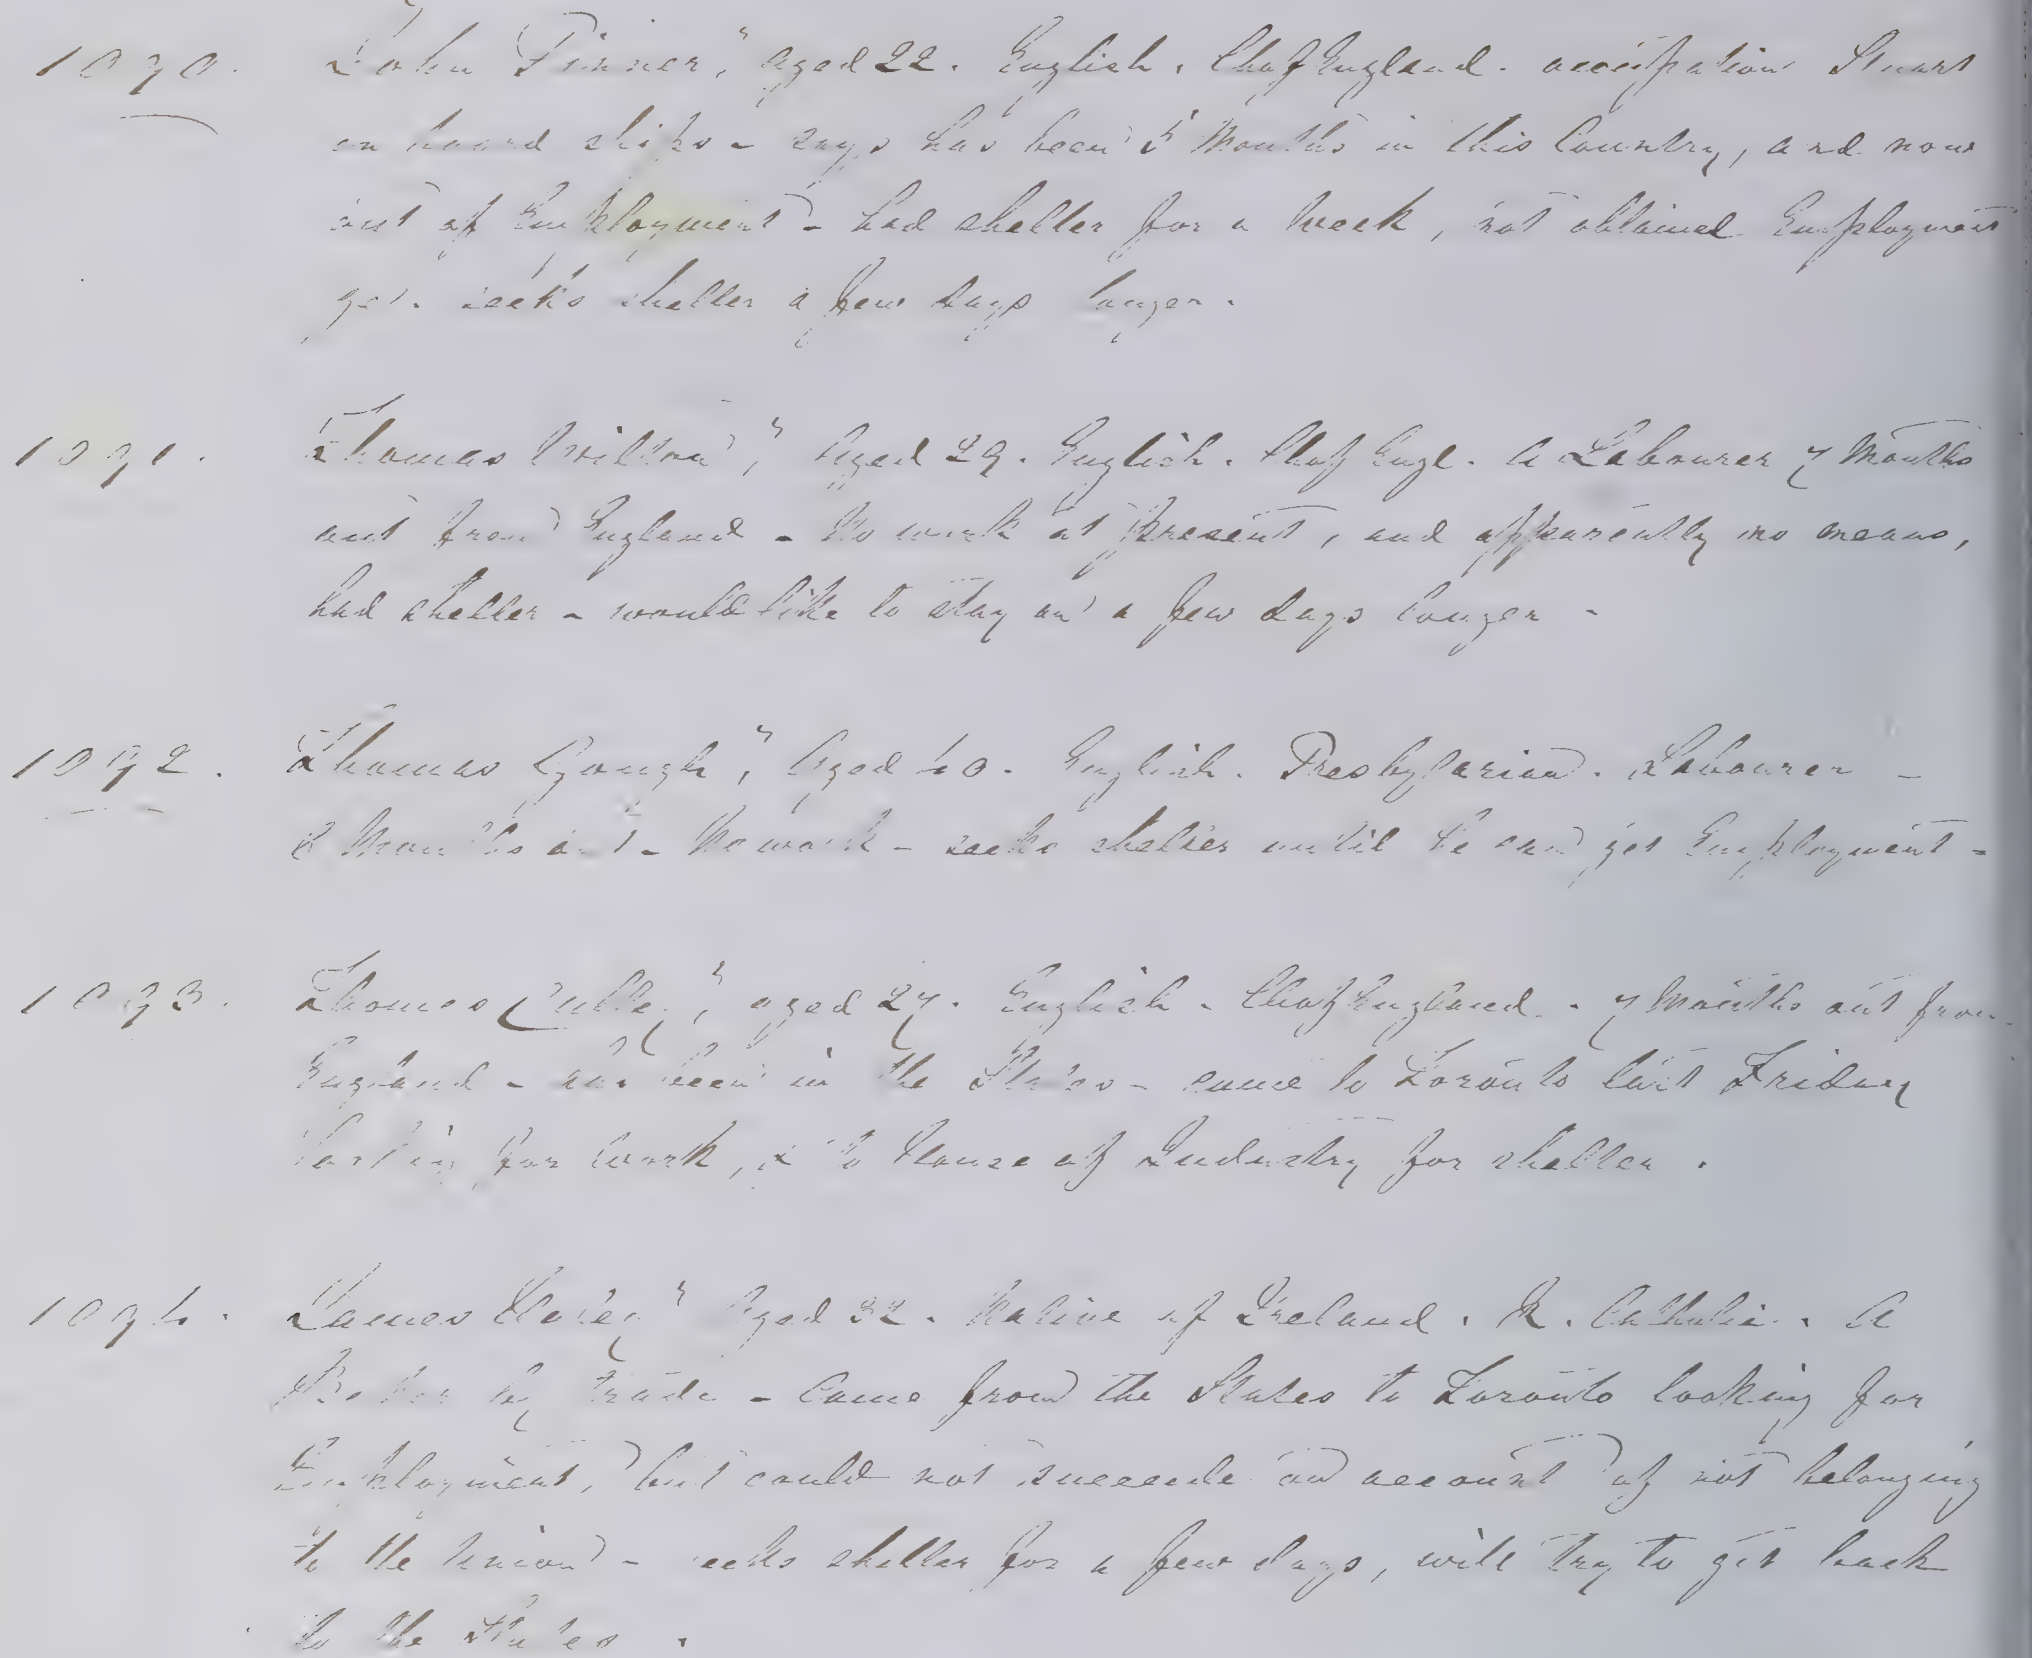 1090. John Finner," aged 22. English. Ch of England. occupation Stuart
on board ships - says has been 5 Months in this Country, and now
out of Employment - had shelter for a Week, not obtained Employment
yet. seeks shelter a few days longer.
1091. Thomas Wilton," Aged 29. English. Ch of Engl. A Labourer 7 Months
out from England - No work at present, and apparently no means,
had shelter - would like to stay on a few days longer -
1092. Thomas Gough," Aged 40. English. Presbyterian. Labourer -
8 Months out - No work - seeks shelter until he can get Employment -
1093. Thomas Culley," aged 27. English - Ch of England. - 7 Months out from
England - has been in the States - came to Toronto last Friday
for Work, & to House of Industry for shelter.
1094. James" Aged 32. Native of Ireland. R. Catholic. A
by trade - Came from the States to Toronto looking for
Employment, but could not succede on account of not belonging
to the Union - seeks shelter for a few days, will try to get back
to the States.